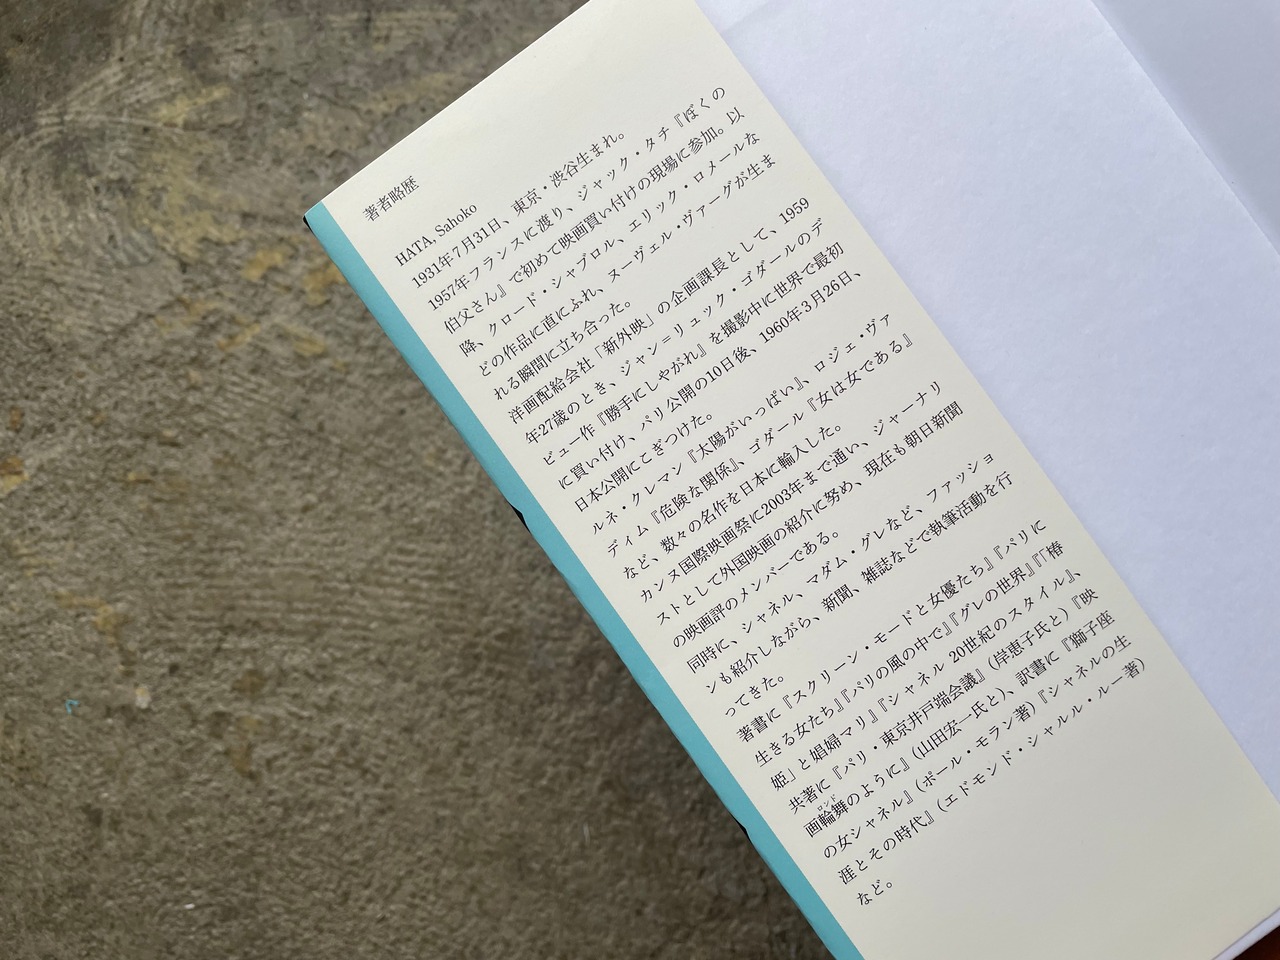 著者略歴
HATA, Sahoko
1931年7月31日、東京・渋谷生まれ。
1957年フランスに渡り、ジャック・タチ『ぼくの
伯父さん』で初めて映画買い付けの現場に参加。以
降、クロード・シャブロル、エリック・ロメールな
どの作品に直にふれ、ヌーヴェル・ヴァーグが生ま
れる瞬間に立ち合った。
洋画配給会社「新外映」の企画課長として、1959
年27歳のとき、ジャン=リュック・ゴダールのデ
ビュー作『勝手にしやがれ』を撮影中に世界で最初
に買い付け、パリ公開の10日後、1960年3月26日、
日本公開にこぎつけた。
ルネ・クレマン『太陽がいっぱい』、ロジェ・ヴァ
ディム『危険な関係』、ゴダール『女は女である』
など、数々の名作を日本に輸入した。
カンヌ国際映画祭に2003年まで通い、ジャーナリ
ストとして外国映画の紹介に努め、現在も朝日新聞
の映画評のメンバーである。
同時に、シャネル、マダム・グレなど、ファッショ
ンも紹介しながら、新聞、雑誌などで執筆活動を行
ってきた。
著書に『スクリーン・モードと女優たち』『パリに
生きる女たち』『パリの風の中で』『グレの世界』『「椿
姫」と娼婦マリ』『シャネル 20世紀のスタイル』、
共著に『パリ・東京井戸端会議』（岸恵子氏と）『映
画輪舞のように』（山田宏一氏と）、訳書に『獅子座
の女シャネル』（ポール・モラン著）『シャネルの生
涯とその時代』（エドモンド・シャルル・ルー著）
など。